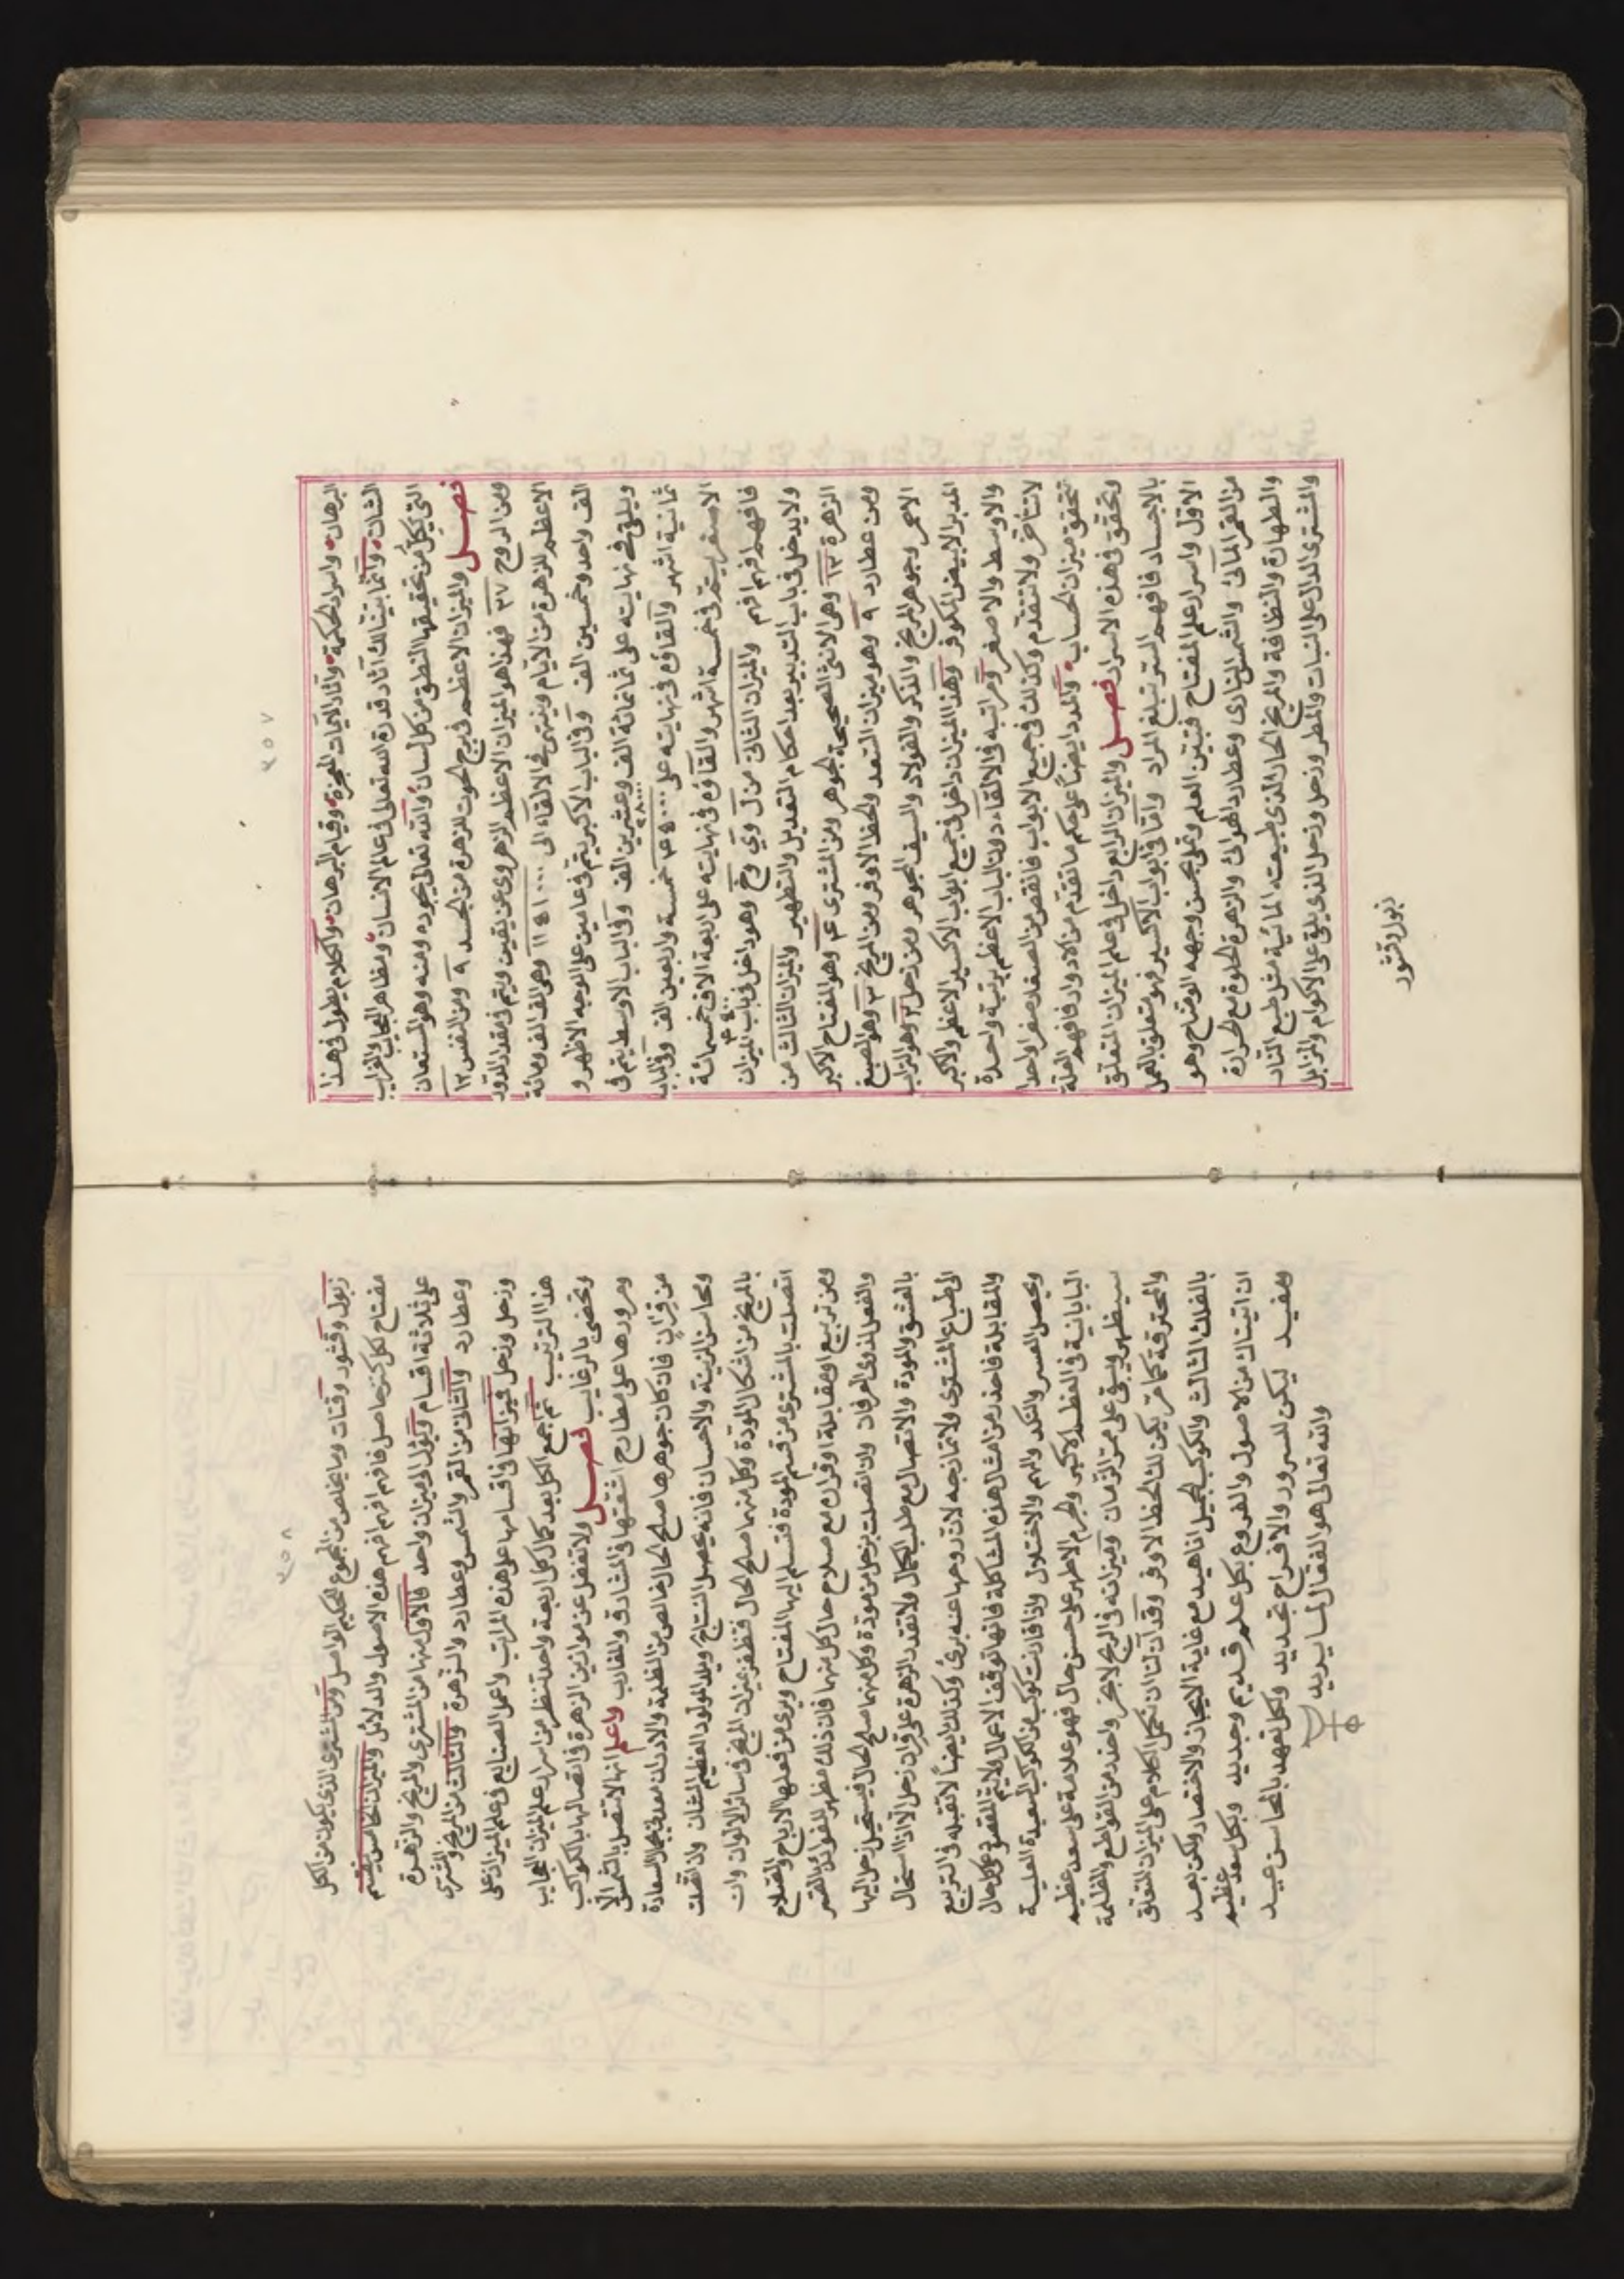 ٣٥٧
البرهان واسرار الحكمة واثار الايات المعجزة وقيام البرهان والكلام يطول فى هذا
الشان وانما بينا لك آثار قدرة الله تعالى فى عالم الانسان ومظاهر العجايب والغرايب
التى يكل من تحقيقها المنطق من كل لسان والله تعالى بجوده ومنه وهو المستعان
فصل والميزان الاعظم فى برج الحوت للزهرة من الجسد ٩ ومن النفس ١٢
ومن الروح ٢٧ فهذا هو الميزان الاعظم الزهروى عن يقين ويتم فى مقدار الدور
الاعظم للزهرة من الايام وينتهى فى الالقاء الى وهى الف الف ومائة
الف واحد وخمسين الف وفى الباب الاكبر يتم فى عامين على الوجه الاظهر و
ويلقى فى نهايته على ثمانمائة الف وعشرين الف وفى الباب الاوسط يتم فى
ثمانية اشهر والقاؤه فى نهايته على خمسة واربعين الف وفى الباب
الاصغر يتم فى خمسة اشهر والقاؤه فى نهايته على اربعة الاف خمسمائة
فافهم افهم افهم والميزان الثانى من ل وى وخ وهو داخل فى باب الميزان
ولا يدخل فى باب التدبير بعد احكام التعديل والتطهير والميزان الثالث من
الزهرة ١٣ وهى الانثى الصحيحة الجوهر ومن المشترى ٤ وهو المفتاح الاكبر
ومن عطارد ٩ وهو ميزان التعدد والحظ الاوفر ومن المريخ ٣ وهو الصبغ
الاحمر وجوهر المريخ والذكر والفولاد والسيف المجوهر ومن زحل ٢ وهو التراب
المدبر الابيض المكوفر وهذا الميزان داخل فى جميع ابواب الاكسير الاعظم والاكبر
والاوسط والاصغر ومراتبه فى الالقاء دون الباب الاعظم برتبة واحدة
لا تتأخر ولا تتقدم وكذلك فى جميع الابواب فانقص من الصفر صفرا واحدا
تحقق ميزان الحساب والمدد ايضاً على حكم ما تقدم من الادوار فافهم العلة
وتحقق فى هذه الاسرار فصل والميزان الرابع داخل فى علم الميزان المتعلق
بالاجساد فافهم السر تبلغ المراد واما فى ابواب الاكسير فهو متعلق بالعمل
الاول واسرار علم المفتاح فيتبين العلم وتملى بحسن وجهه الوضاح وهو
من القمر المائى والشمس النارى وعطارد الهوائى والزهرة الحلوة مع الحرارة
والطهارة والنظافة والمريخ الحار الذى طبيعته المائية مثل طبع النار
والمشترى الدال على النبات والمطر وزحل الذى يلقى على الاكوام والمزابل
زبول وقشور
٣٥٨
زبول وقشور وفتات وما يخلص من المجموع للحكيم الواصل ومن المشترى الذى يكون من الكل
مفتاح لكل كنز حاصل فافهم افهم افهم هذه الاصول والدلائل والميزان الخامس ينقسم
على ثلاثة اقسام ويؤل الميزان واحد فالاول منها من المشترى والمريخ والزهرة
وعطارد والثلاث من القمر والشمس وعطارد والزهرة والثالث من المريخ والمشترى
وزحل وزحل فيزانها فى اقسامها على هذه المراتب واعمل الصنايع فى علم الميزان على
هذا الترتيب ثم اجمع الكل بعد كمال كل اربعة واحد تنظر من اسرار علم الميزان العجايب
وتحضى بالرغايب فصل ولا تغفل عن موازين الزهرة فى اتصالها بالكواكب
ومرورها على مطارح اشعتها فى المشارق والمغارب واعلم انها لا تتصل بالشمس الا
من قران فان كان جوهرها صلح الحال خالص من الظلمة والادران معدن السعادة
ومحاسن الزينة والاحسان فانه يحصل النتاج ويلد المولود العظيم الشان وان اتصلت
بالمريخ من اشكال المودة وكل منهما صلح الحال فتظفر بميزان المريخ فى سائر الالوان وان
اتصلت بالمشترى من قسم المودة فتسلم اليها المفتاح ويرى من فعلها الارباح والصلاح
ومن تربيع او مقابلة او قران مع صلاح حال كل منهما فان ذلك مظهر للفوائد بالقسر
والفعل لذوى العرفان وان اتصلت بزحل من مودة وكل منهما صلح الحال فيستحيل زحل اليها
بالعشق والمودة والاتصال مع طلب الكمال ولا تقدر الزهرة على قران زحل الا اذا استحال
الى طباع المشترى ولا تمازجه لان روحها عنه برئ وكذلك ايضاً لا تقبله فى التربيع
والمقابلة فاحذر من امثال هذه المشاكلة فانها توقف الاعمال ولا يتم المقصود على كل حال
ويحصل العسر والنكد والهم والاختلال واذا قارنت كوكب من الكواكب السعيدة العلية
البابانية فى العظم الاكبر والجرم الاطهر على حسن حال فهو علامة على سعد عظيم
سيظهر ويبقى على ممر الزمان وميزانه فى الربح لا يخسر واحذر من القواطع والظلمة
والمحترقة كما مر يكن لك الحظ الاوفر وقد آن لنا ان نكمل الكلام على الميزان المتعلق
بالفلك الثالث والكوكب الجميل اناهيد مع غاية الايجاز والاختصار ولكن بعد
ان اتيناك من الاصول والفروع بكل علم قديم وجديد وبكل سعد عظيم
ومفيد ليكن للسرور والافراح تجديد ولكل تعهد بالمحاسن عيد
والله تعالى هو الفعال لما يريد